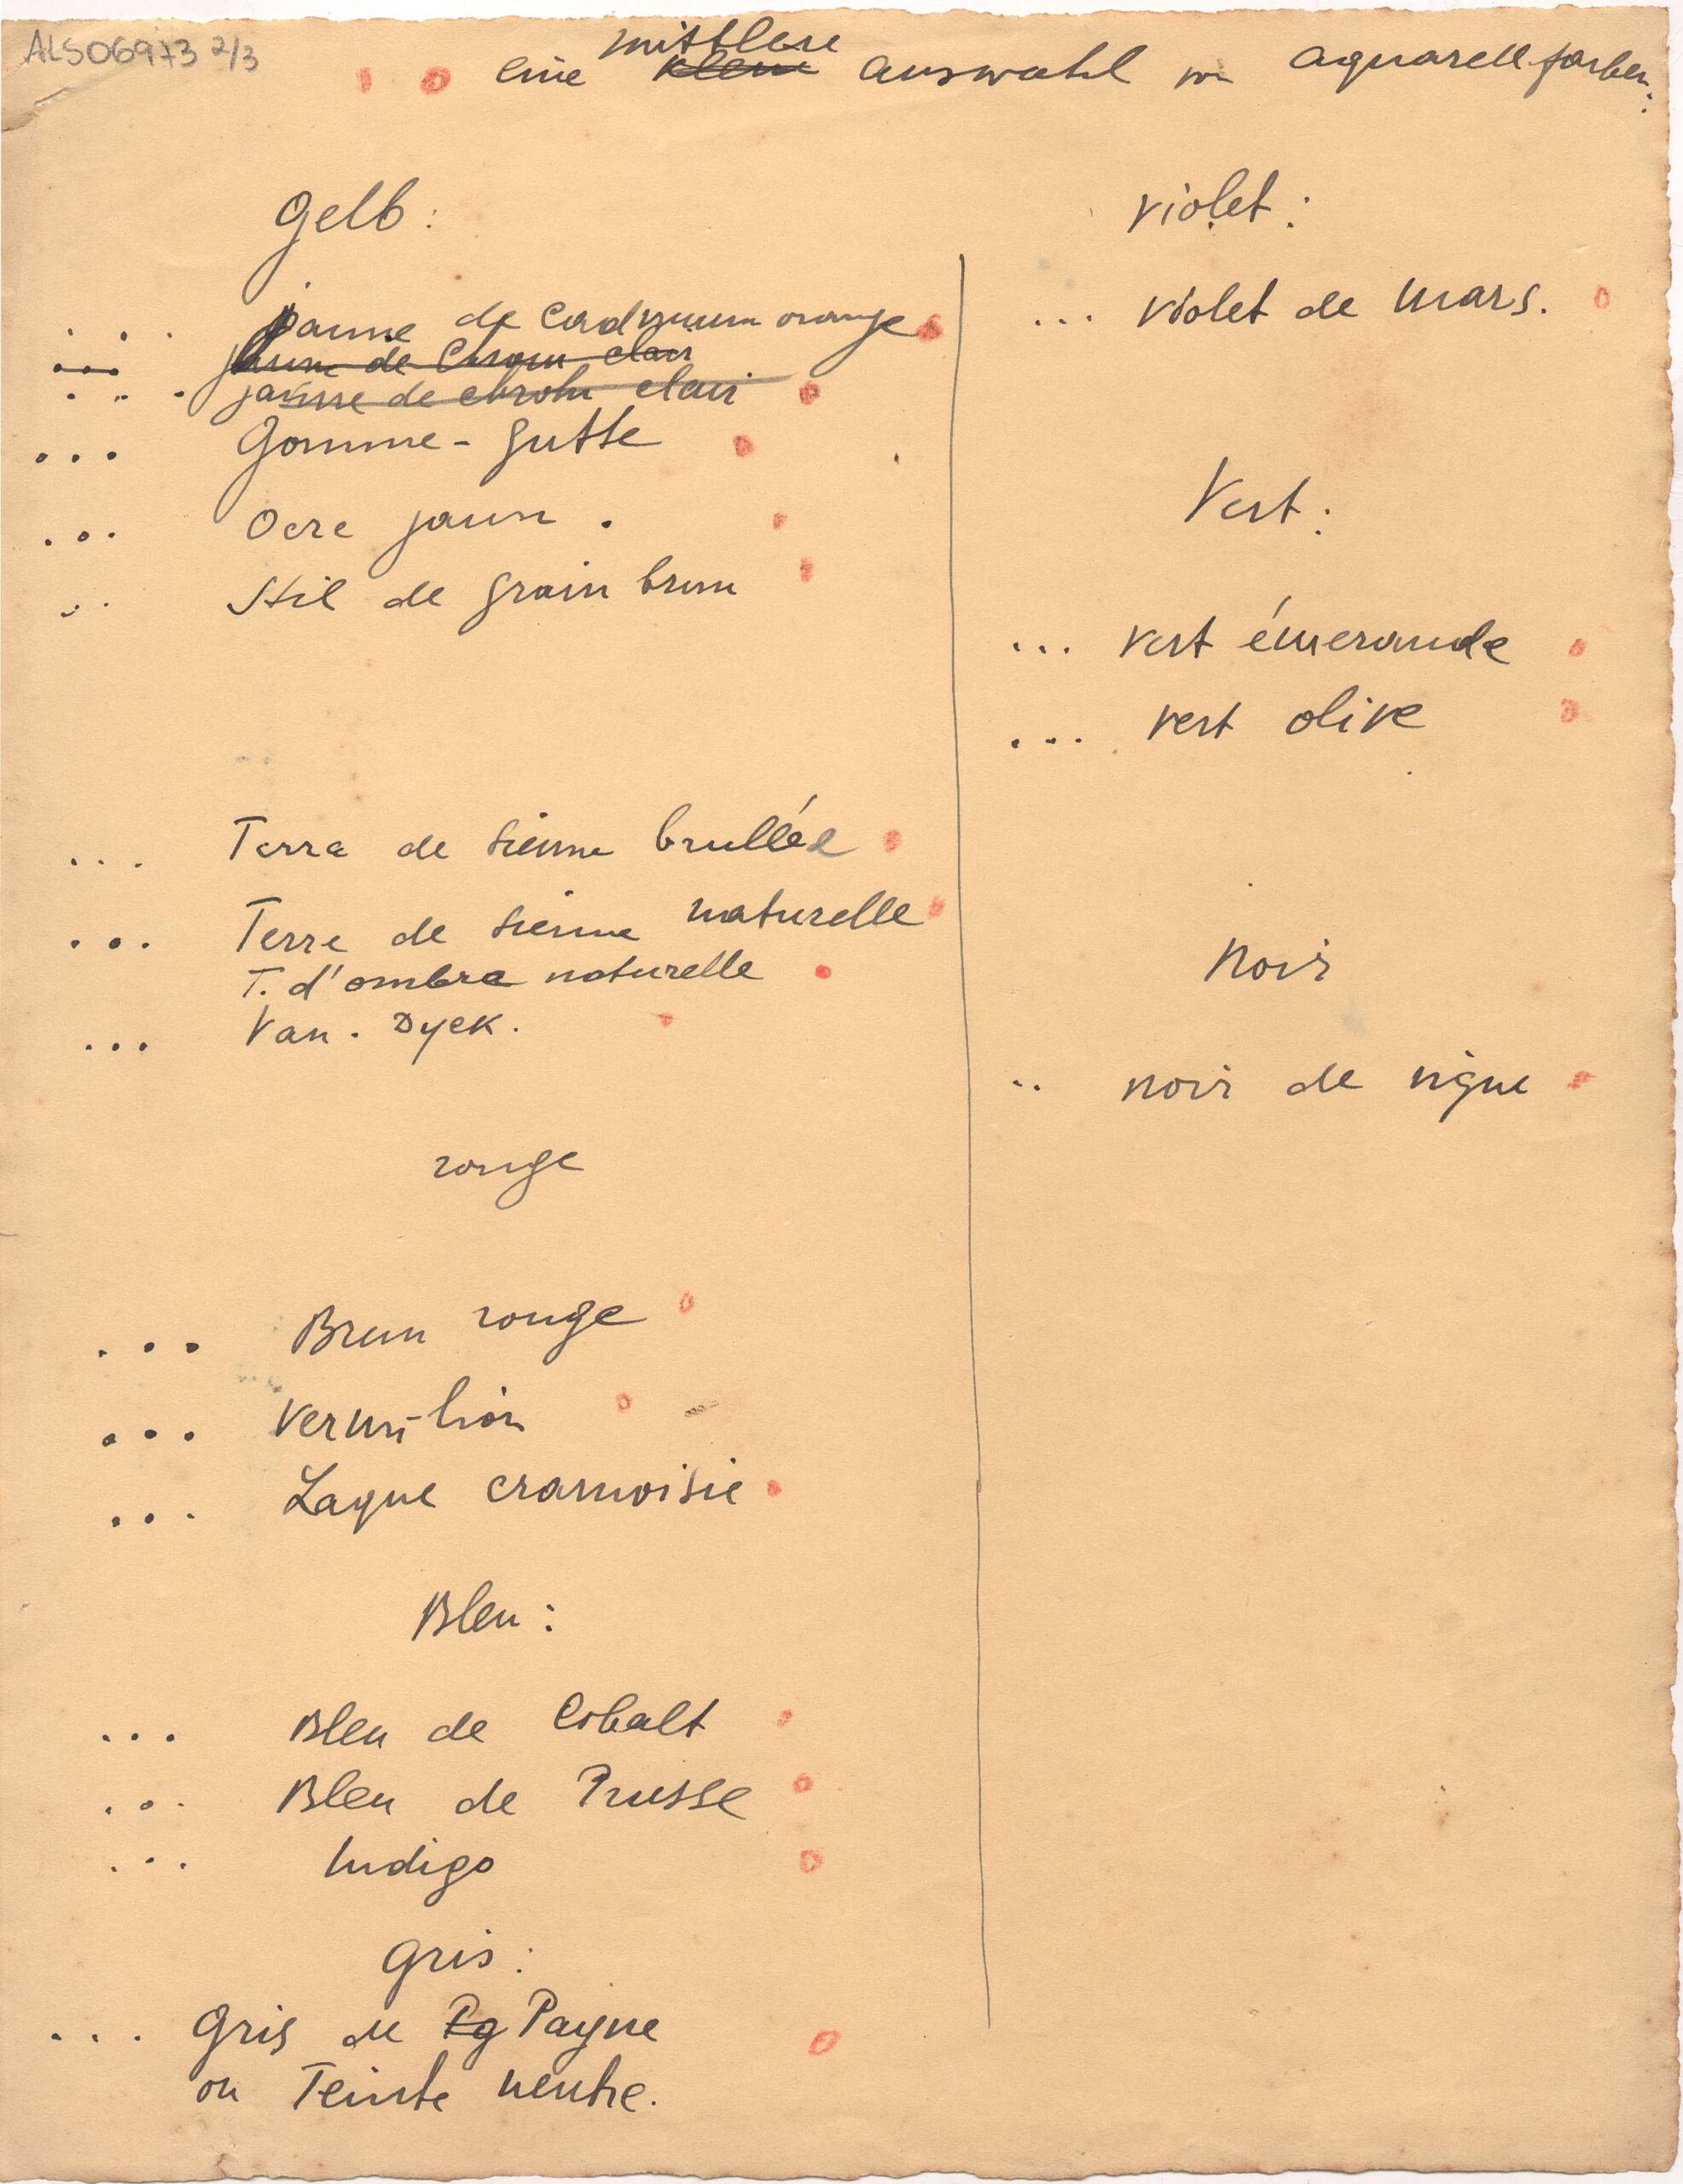 ALS06973 2/3
mittlere
eine kleine auswahl von aquarellfarben:
Gelb:
... jaune de Cadmium orange
... jaune de Chrom clair
... jaune de chrom clair
... Gomme-gutte
... Ocre jaun.
.. Stil de grain brun
... Terre de sienne brullée
... Terre de sienne naturelle
T. d'ombre naturelle
... Van. Dyck.
rouge
... Brun rouge
... Vermi-lion
... Laque cramoisie
Bleu:
... Bleu de Cobalt
... Bleu de Prusse
... Indigo
Gris:
... Gris de Pg Payne
ou Teinte neutre.
violet:
... violet de mars.
Vert:
... vert émeraude
... vert olive
noir
.. noir de vigne